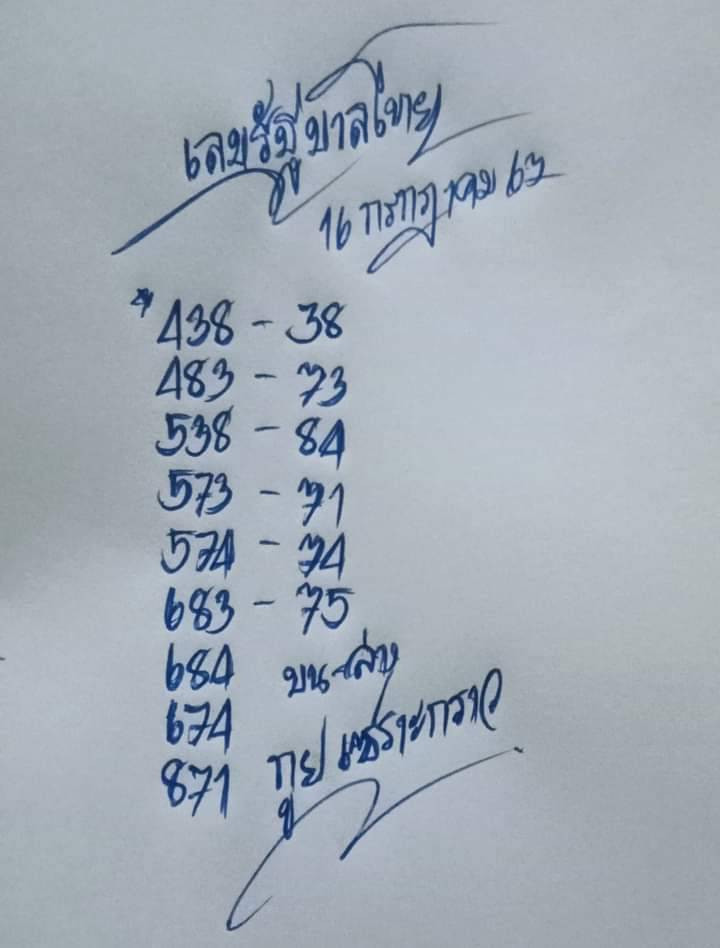 เลขรัฐบาลไทย
16 กรกฎาคม 63
*438 - 38
483 - 73
538 - 84
573 - 71
574 - 74
683 - 75
684 บน-ล่าง
674
871 กูย เซราะกราว